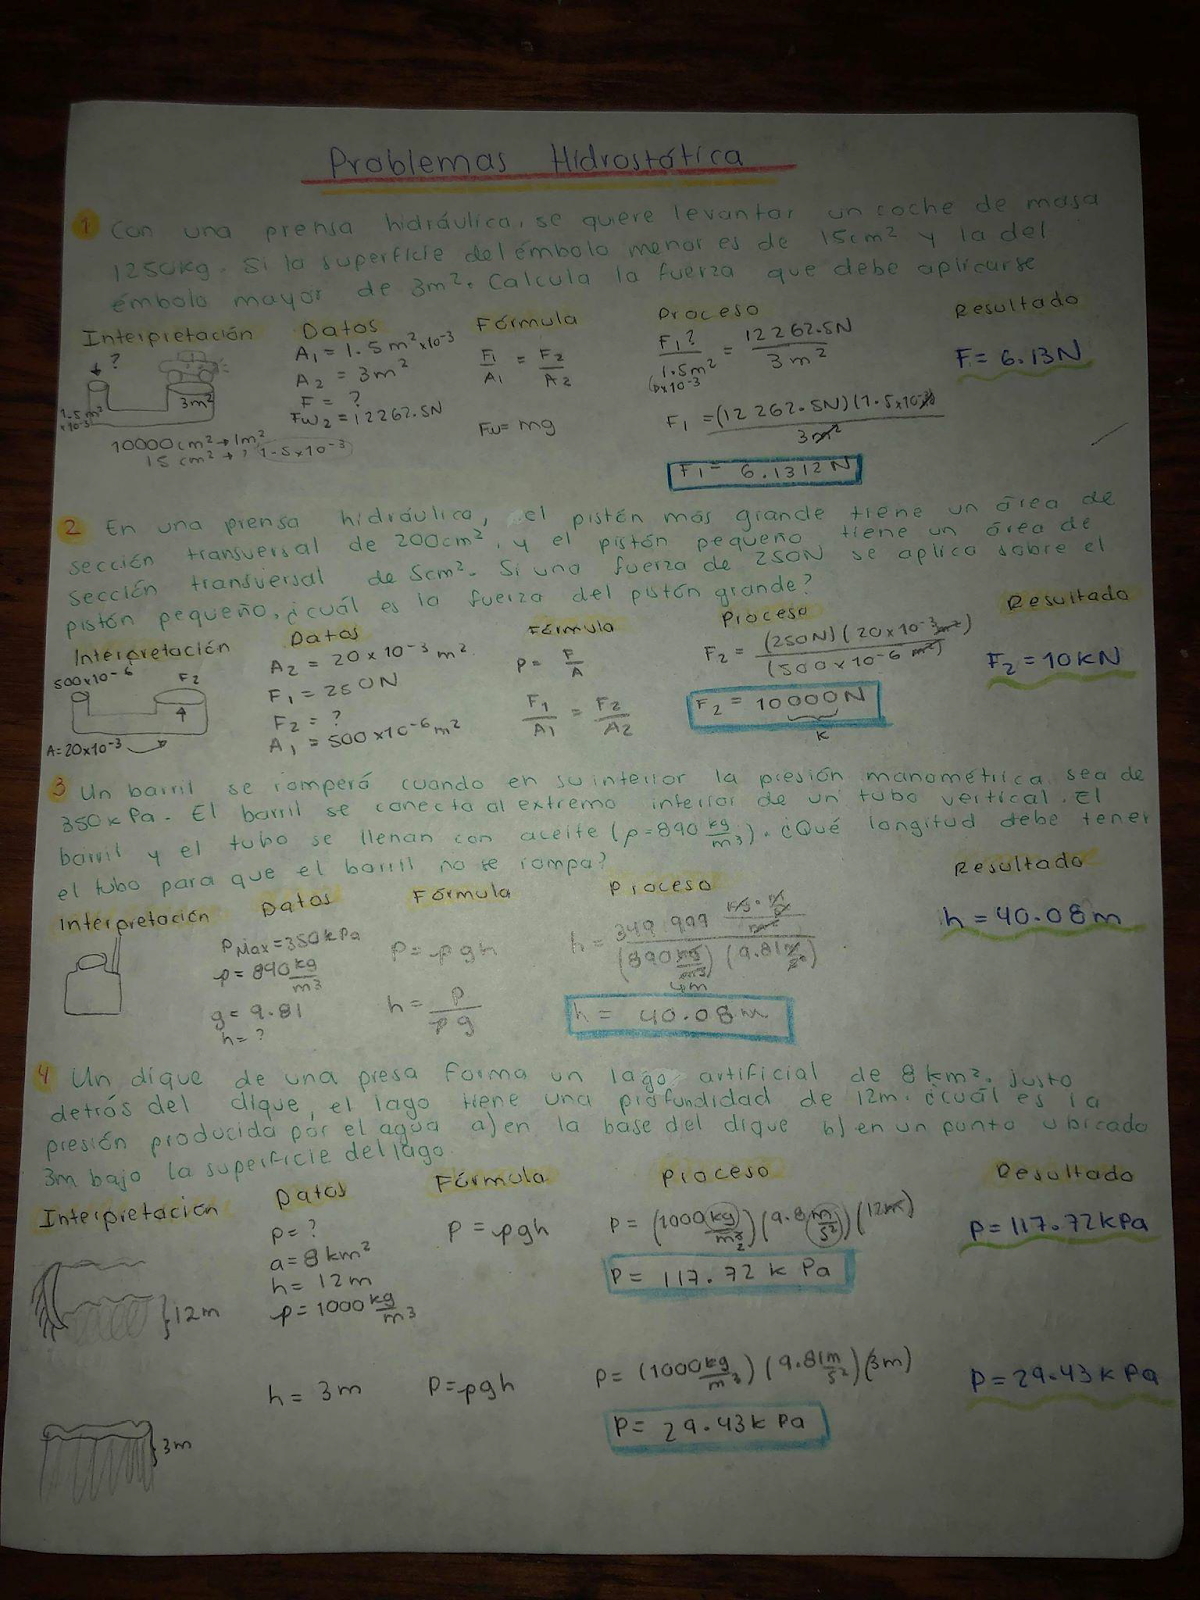 Problemas Hidrostática
1 Con una prensa hidráulica, se quiere levantar un coche de masa
1250kg. Si la superficie del émbolo menor es de 15cm² y la del
émbolo mayor de 3m². Calcula la fuerza que debe aplicarse
Interpretación Datos Fórmula Proceso Resultado
?
3m²
1.5m² x10⁻³
10000cm² → 1m²
15cm² → ? 1.5x10⁻³
A₁ = 1.5m² x10⁻³
A₂ = 3m²
F = ?
Fw₂ = 12262.5N
F₁/A₁ = F₂/A₂
Fw = mg
F₁?/1.5m² = 12262.5N/3m²
F₁ = (12262.5N)(1.5x10⁻³)/3m²
F₁ = 6.1312N
F = 6.13N
2 En una prensa hidráulica, el pistón más grande tiene un área de
sección transversal de 200cm², y el pistón pequeño tiene un área de
sección transversal de 5cm². Si una fuerza de 250N se aplica sobre el
pistón pequeño, ¿cuál es la fuerza del pistón grande?
Interpretación Datos Fórmula Proceso Resultado
500x10⁻⁶ F₂
A=20x10⁻³
A₂ = 20x10⁻³m²
F₁ = 250N
F₂ = ?
A₁ = 500x10⁻⁶m²
P = F/A
F₁/A₁ = F₂/A₂
F₂ = (250N)(20x10⁻³m²)/(500x10⁻⁶m²)
F₂ = 10000N
K
F₂ = 10KN
3 Un barril se romperá cuando en su interior la presión manométrica sea de
350kPa. El barril se conecta al extremo inferior de un tubo vertical. El
barril y el tubo se llenan con aceite (ρ=890 kg/m³). ¿Qué longitud debe tener
el tubo para que el barril no se rompa?
Interpretación Datos Fórmula Proceso Resultado
PMax=350kPa
ρ=890 kg/m³
g=9.81
h=?
P=ρgh
h=P/ρg
h = 40.08m
h = 40.08m
4 Un dique de una presa forma un lago artificial de 8km². Justo
detrás del dique, el lago tiene una profundidad de 12m. ¿Cuál es la
presión producida por el agua a) en la base del dique b) en un punto ubicado
3m bajo la superficie del lago.
Interpretación Datos Fórmula Proceso Resultado
12m
P=?
a=8km²
h=12m
ρ=1000 kg/m³
P=ρgh
P = 117.72 k Pa
P=117.72kPa
3m
h=3m
P=ρgh
P=(1000 kg/m³)(9.81m/s²)(3m)
P= 29.43k Pa
P=29.43kPa